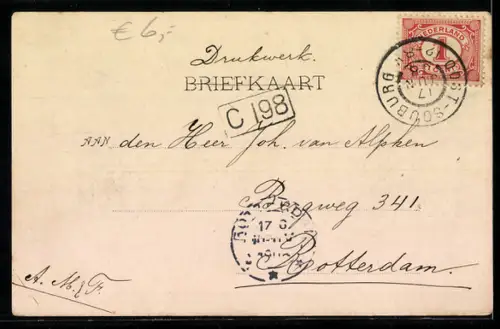 € 6,-
Drukwerk.
BRIEFKAART
NEDERLAND
1
OOST-SOUBURG
17
C 198
AAN den Heer Joh. van Alphen
Bergweg 341.
17
Rotterdam.
A. M. & F.